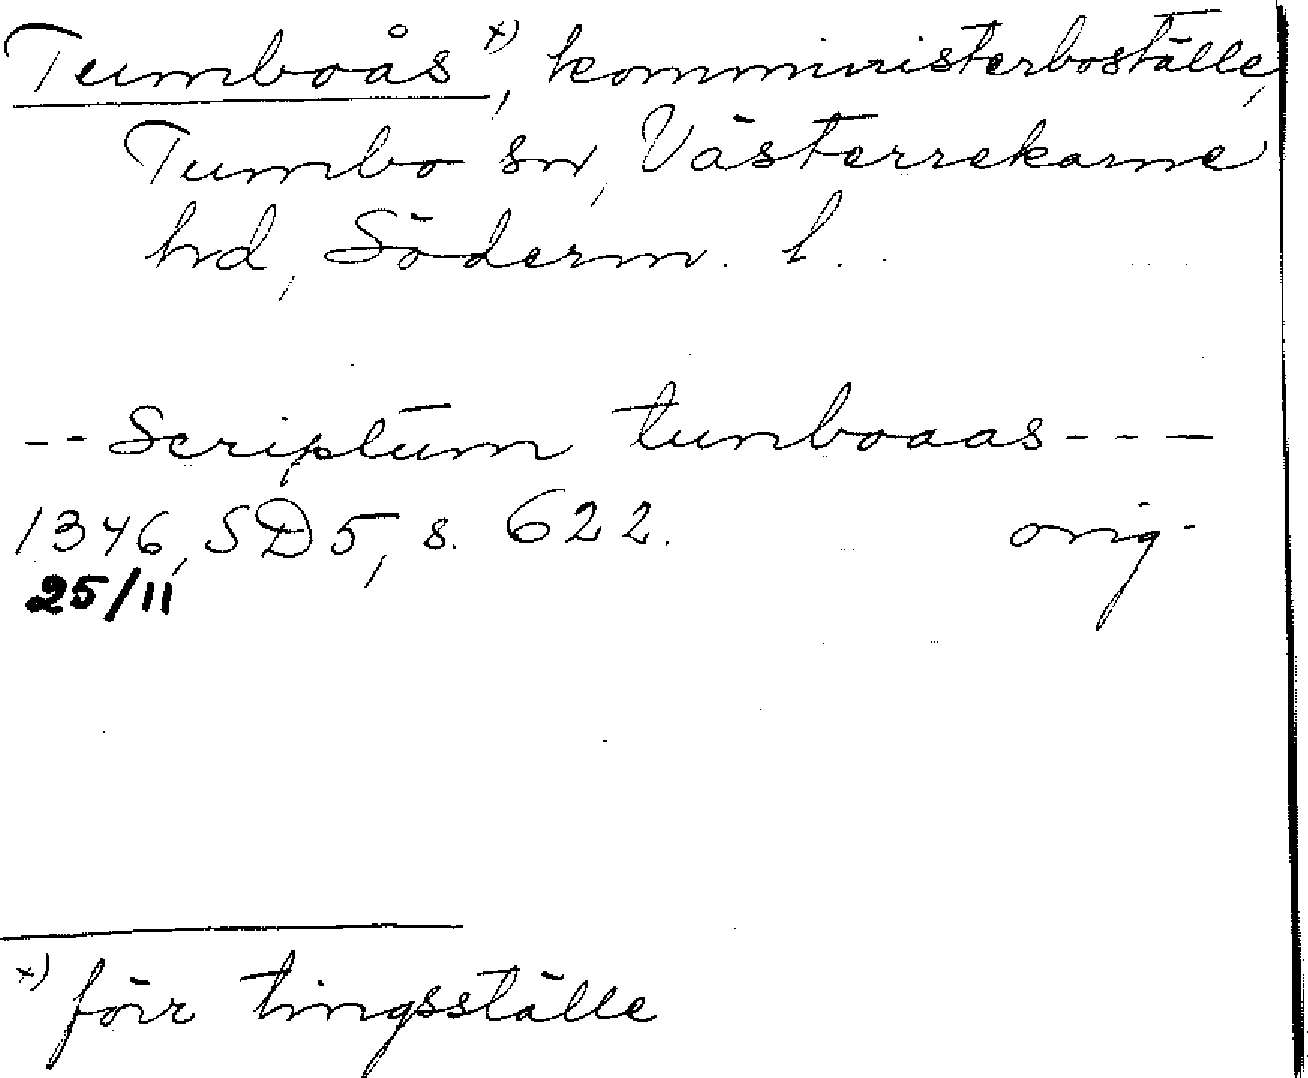 Tumboås x), komministerboställe,
Tumbo sn, Västerrekarne
hd, Söderm. l.
-- Scriptum tunboaas ---
1346, SD 5, s. 622. orig.
25/11
x) förr tingsställe